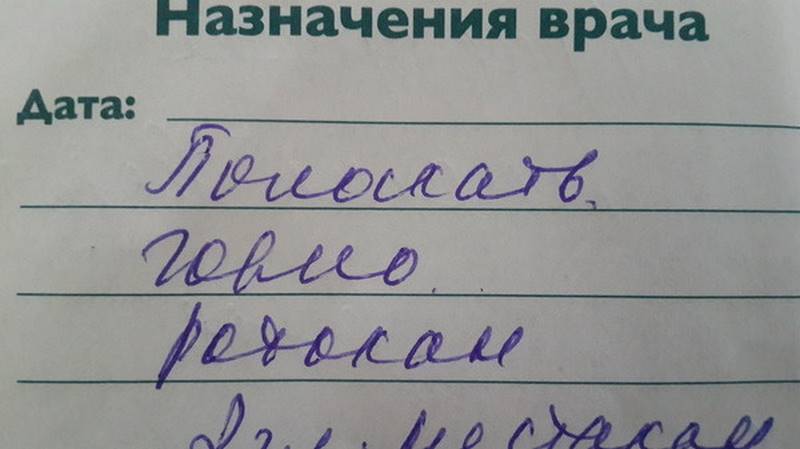 Назначения врача
Дата:
Полоскать
горло
ротокан
на стакан